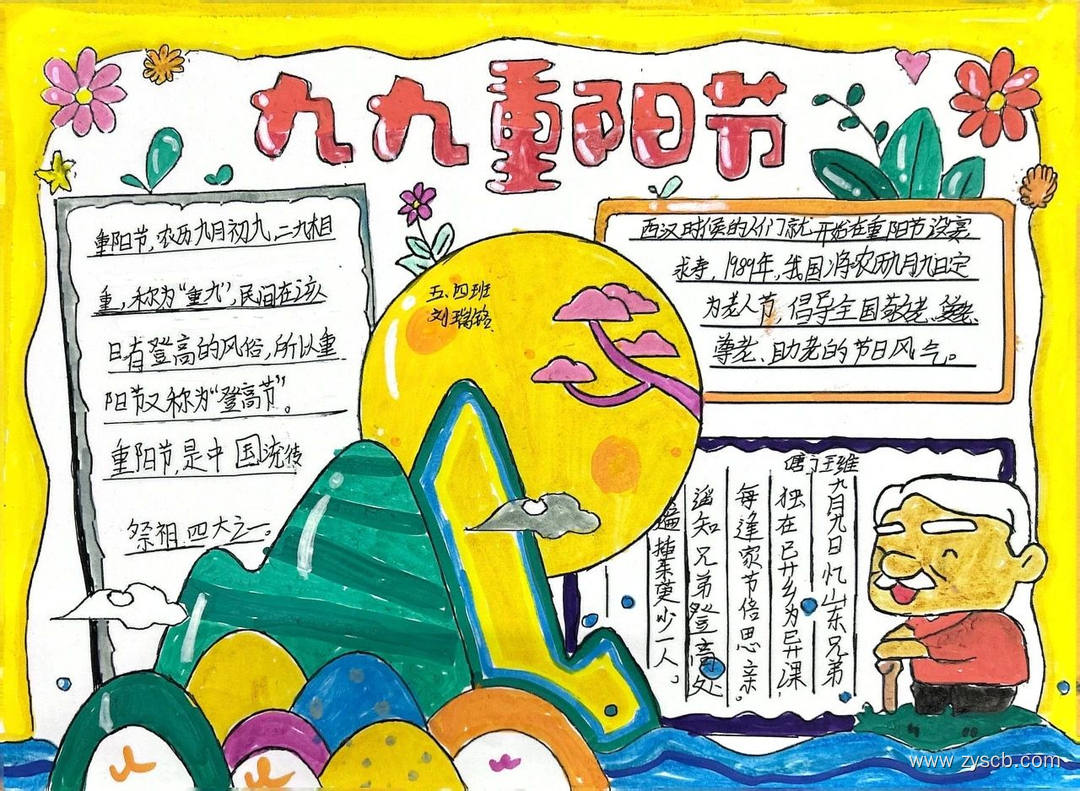 九九重阳节
重阳节,农历九月初九,二九相
重,称为“重九”,民间在该
日有登高的风俗,所以重
阳节又称为“登高节”。
重阳节,是中国流传
祭祖四大之一。
五、四班
刘瑞
西汉时候的人们就开始在重阳节设
求寿,1989年,我国将农历九月九日定
为老人节,倡导全国敬老、
尊老、助老的节日风气。
唐 王维
九月九日忆山东兄弟
独在异乡为异课
每逢家节倍思亲。
遥知兄弟登高处
遍插茱萸少一人。
www.zyscb.com